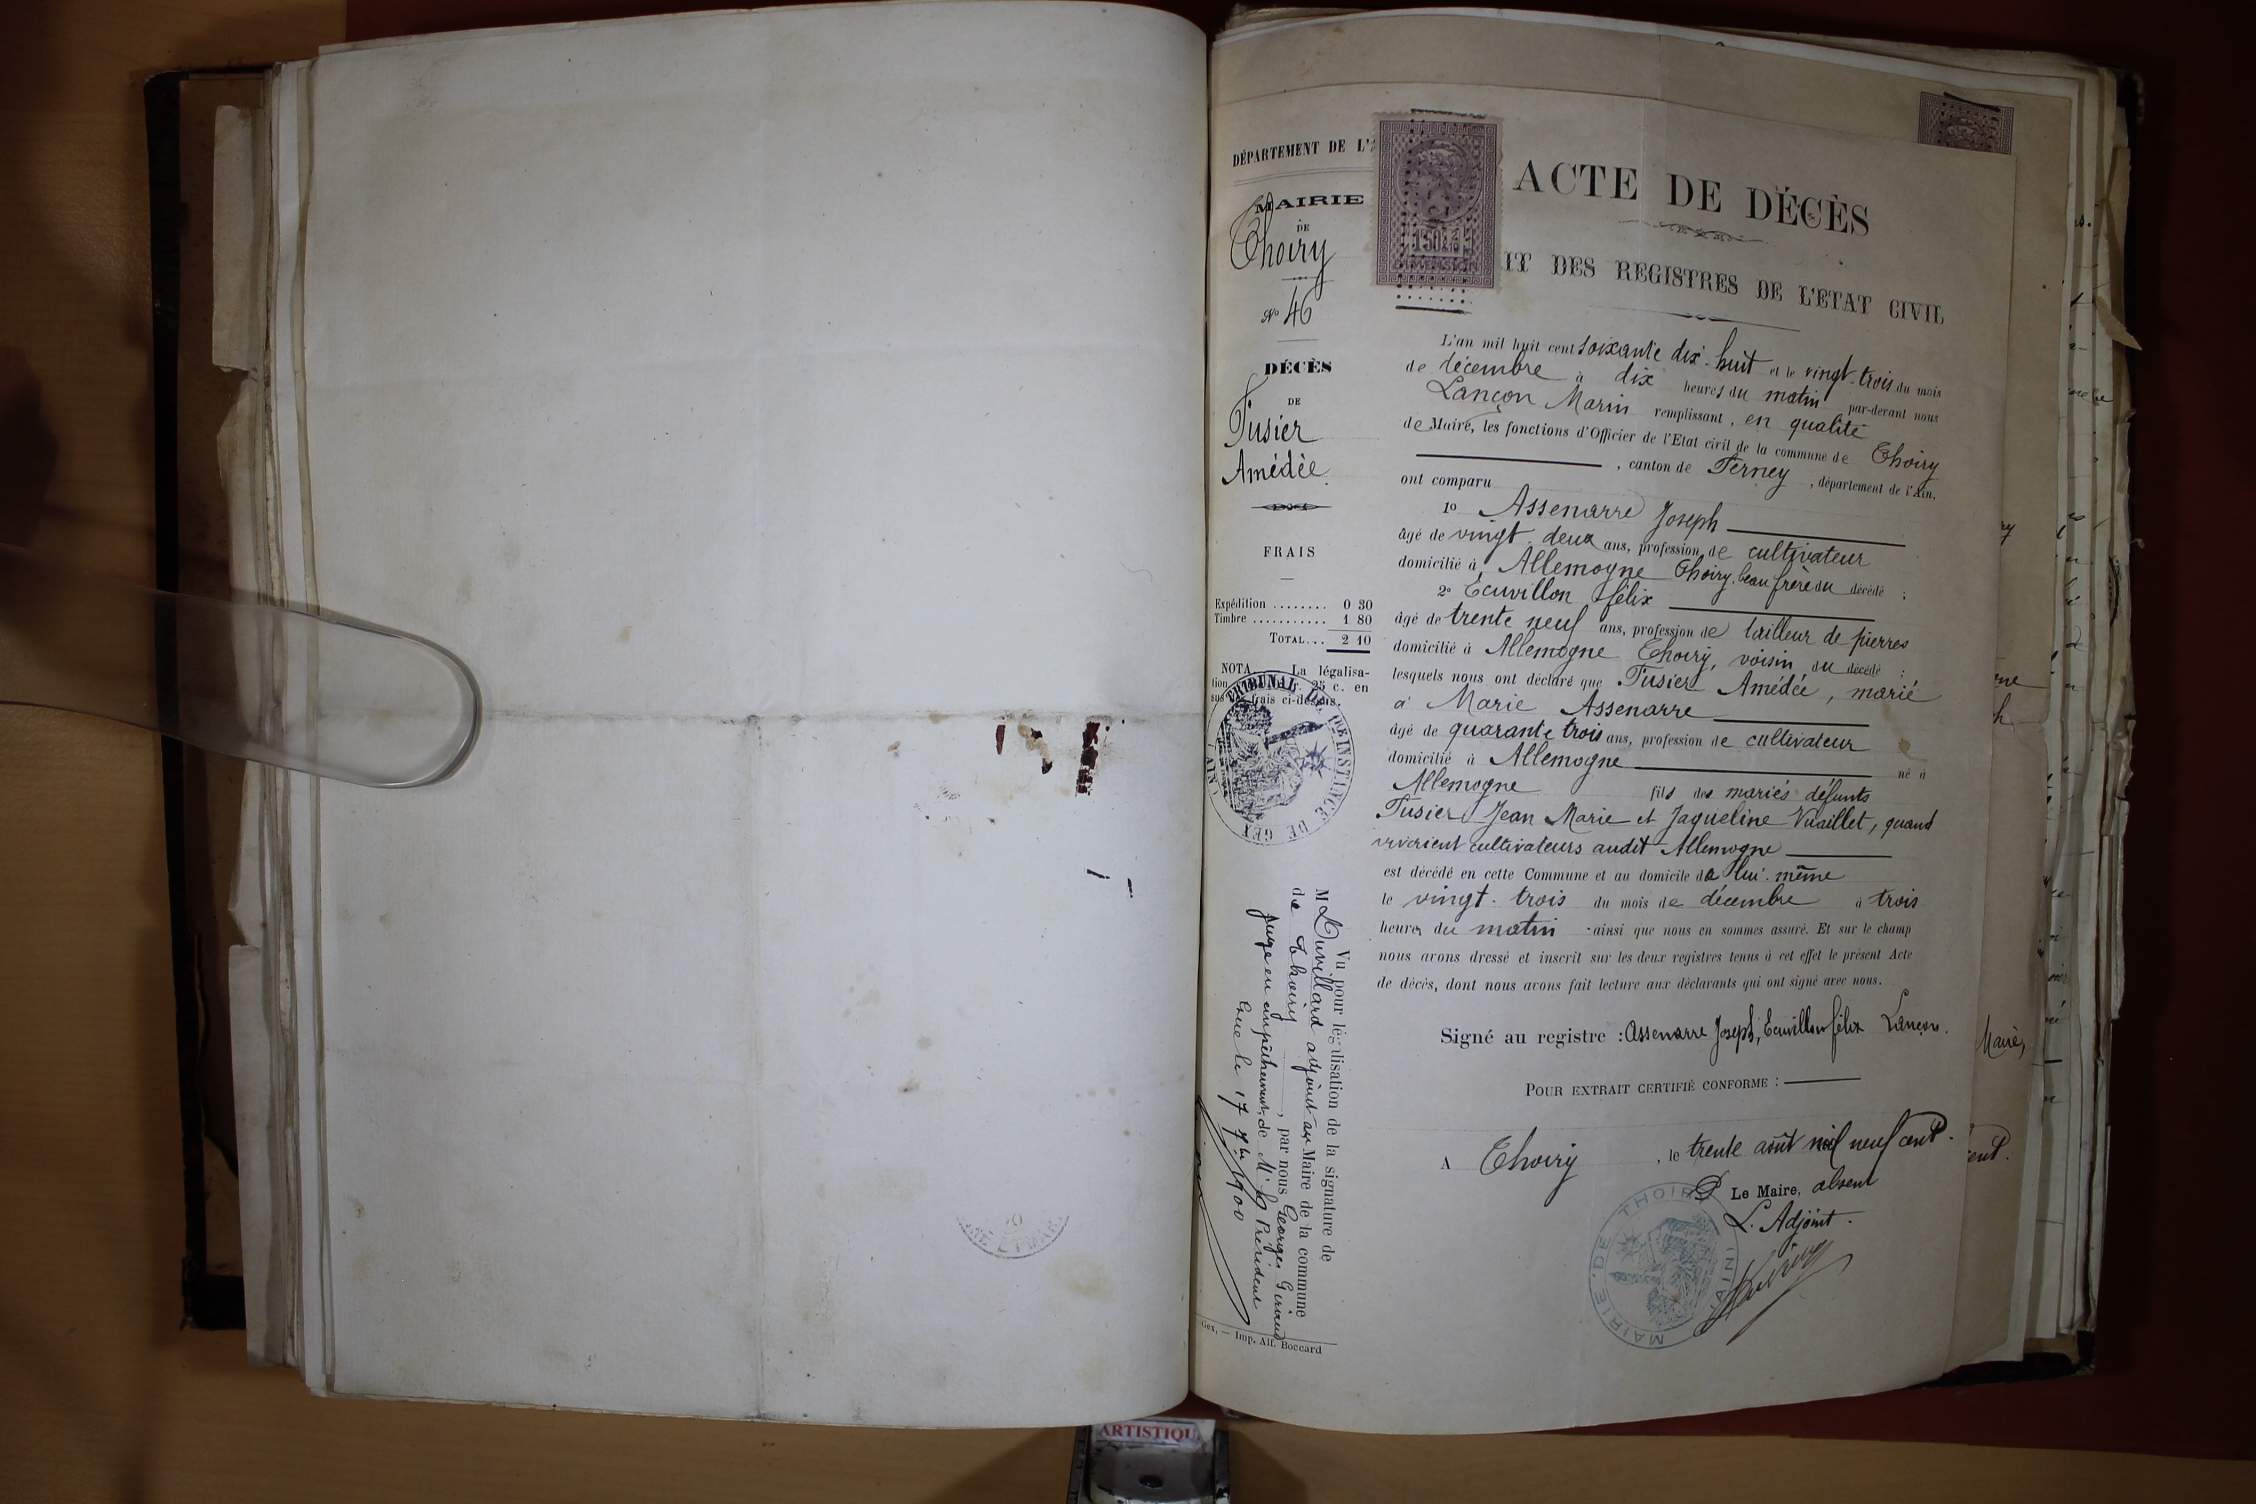 DÉPARTEMENT DE L'A
MAIRIE
DE
Thoiry
No 46
DÉCÈS
DE
Fusier
Amédée.
FRAIS
Expédition ........ 0 30
Timbre ........... 1 80
TOTAL... 2 10
NOTA. La légalisa-
tion 25 c. en
sus frais ci-dessus.
TRIBUNAL DE 1RE INSTANCE DE GEX (AIN)
Vu pour légalisation de la signature de
M Duvillard adjoint au Maire de la commune
de Thoiry, par nous Georges Giriaud
juge en empêchement de Mr le Président
Gex le 17 7bre 1900
Gex, — Imp. Alf. Boccard
1 50
DIMENSION
ACTE DE DÉCÈS
IT DES REGISTRES DE L'ETAT CIVIL
L'an mil huit cent soixante dix-huit et le vingt-trois du mois
de décembre à dix heures du matin par-devant nous
Lançon Marin remplissant, en qualité
de Maire, les fonctions d'Officier de l'Etat civil de la commune de Thoiry
, canton de Ferney, département de l'Ain,
ont comparu
1o Assenarre Joseph
âgé de vingt-deux ans, profession de cultivateur
domicilié à Allemogne Thoiry, beau frère du décédé ;
2o Ecuvillon félix
âgé de trente neuf ans, profession de tailleur de pierres
domicilié à Allemogne Thoiry, voisin du décédé ;
lesquels nous ont déclaré que Fusier Amédée, marié
à Marie Assenarre
âgé de quarante trois ans, profession de cultivateur
domicilié à Allemogne né à
Allemogne fils des mariés défunts
Fusier Jean Marie et Jaqueline Vuaillet, quand
vivaient cultivateurs audit Allemogne
est décédé en cette Commune et au domicile de lui-même
le vingt-trois du mois de décembre à trois
heures du matin ainsi que nous en sommes assuré. Et sur le champ
nous avons dressé et inscrit sur les deux registres tenus à cet effet le présent Acte
de décès, dont nous avons fait lecture aux déclarants qui ont signé avec nous.
Signé au registre : Assenarre Joseph, Ecuvillon félix Lançon.
POUR EXTRAIT CERTIFIÉ CONFORME :
A Thoiry, le trente août mil neuf cent.
Le Maire, absent
L'Adjoint.
MAIRIE DE THOIRY (AIN)
Maire,
ARTISTIQU